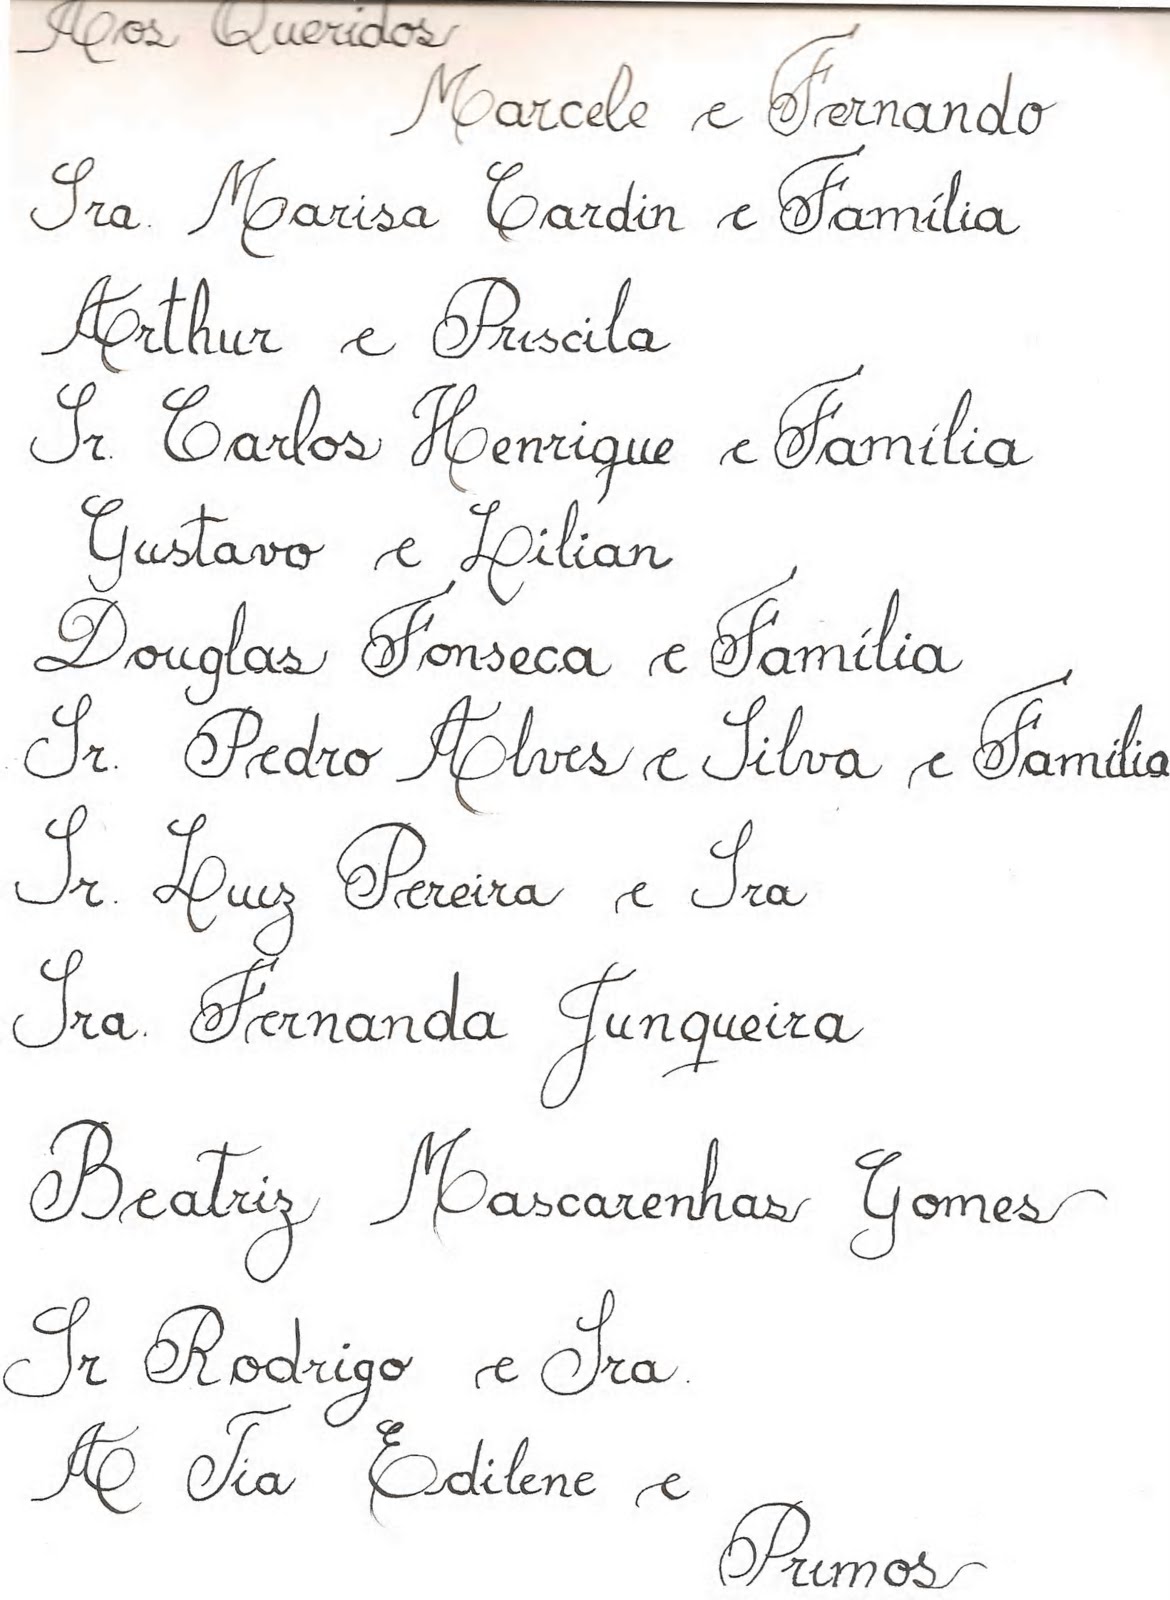 Aos Queridos
Marcele e Fernando
Sra. Marisa Cardin e Família
Arthur e Priscila
Sr. Carlos Henrique e Família
Gustavo e Lilian
Douglas Fonseca e Família
Sr. Pedro Alves e Silva e Família
Sr. Luiz Pereira e Sra
Sra. Fernanda Junqueira
Beatriz Mascarenhas Gomes
Sr Rodrigo e Sra.
A Tia Edilene e
Primos